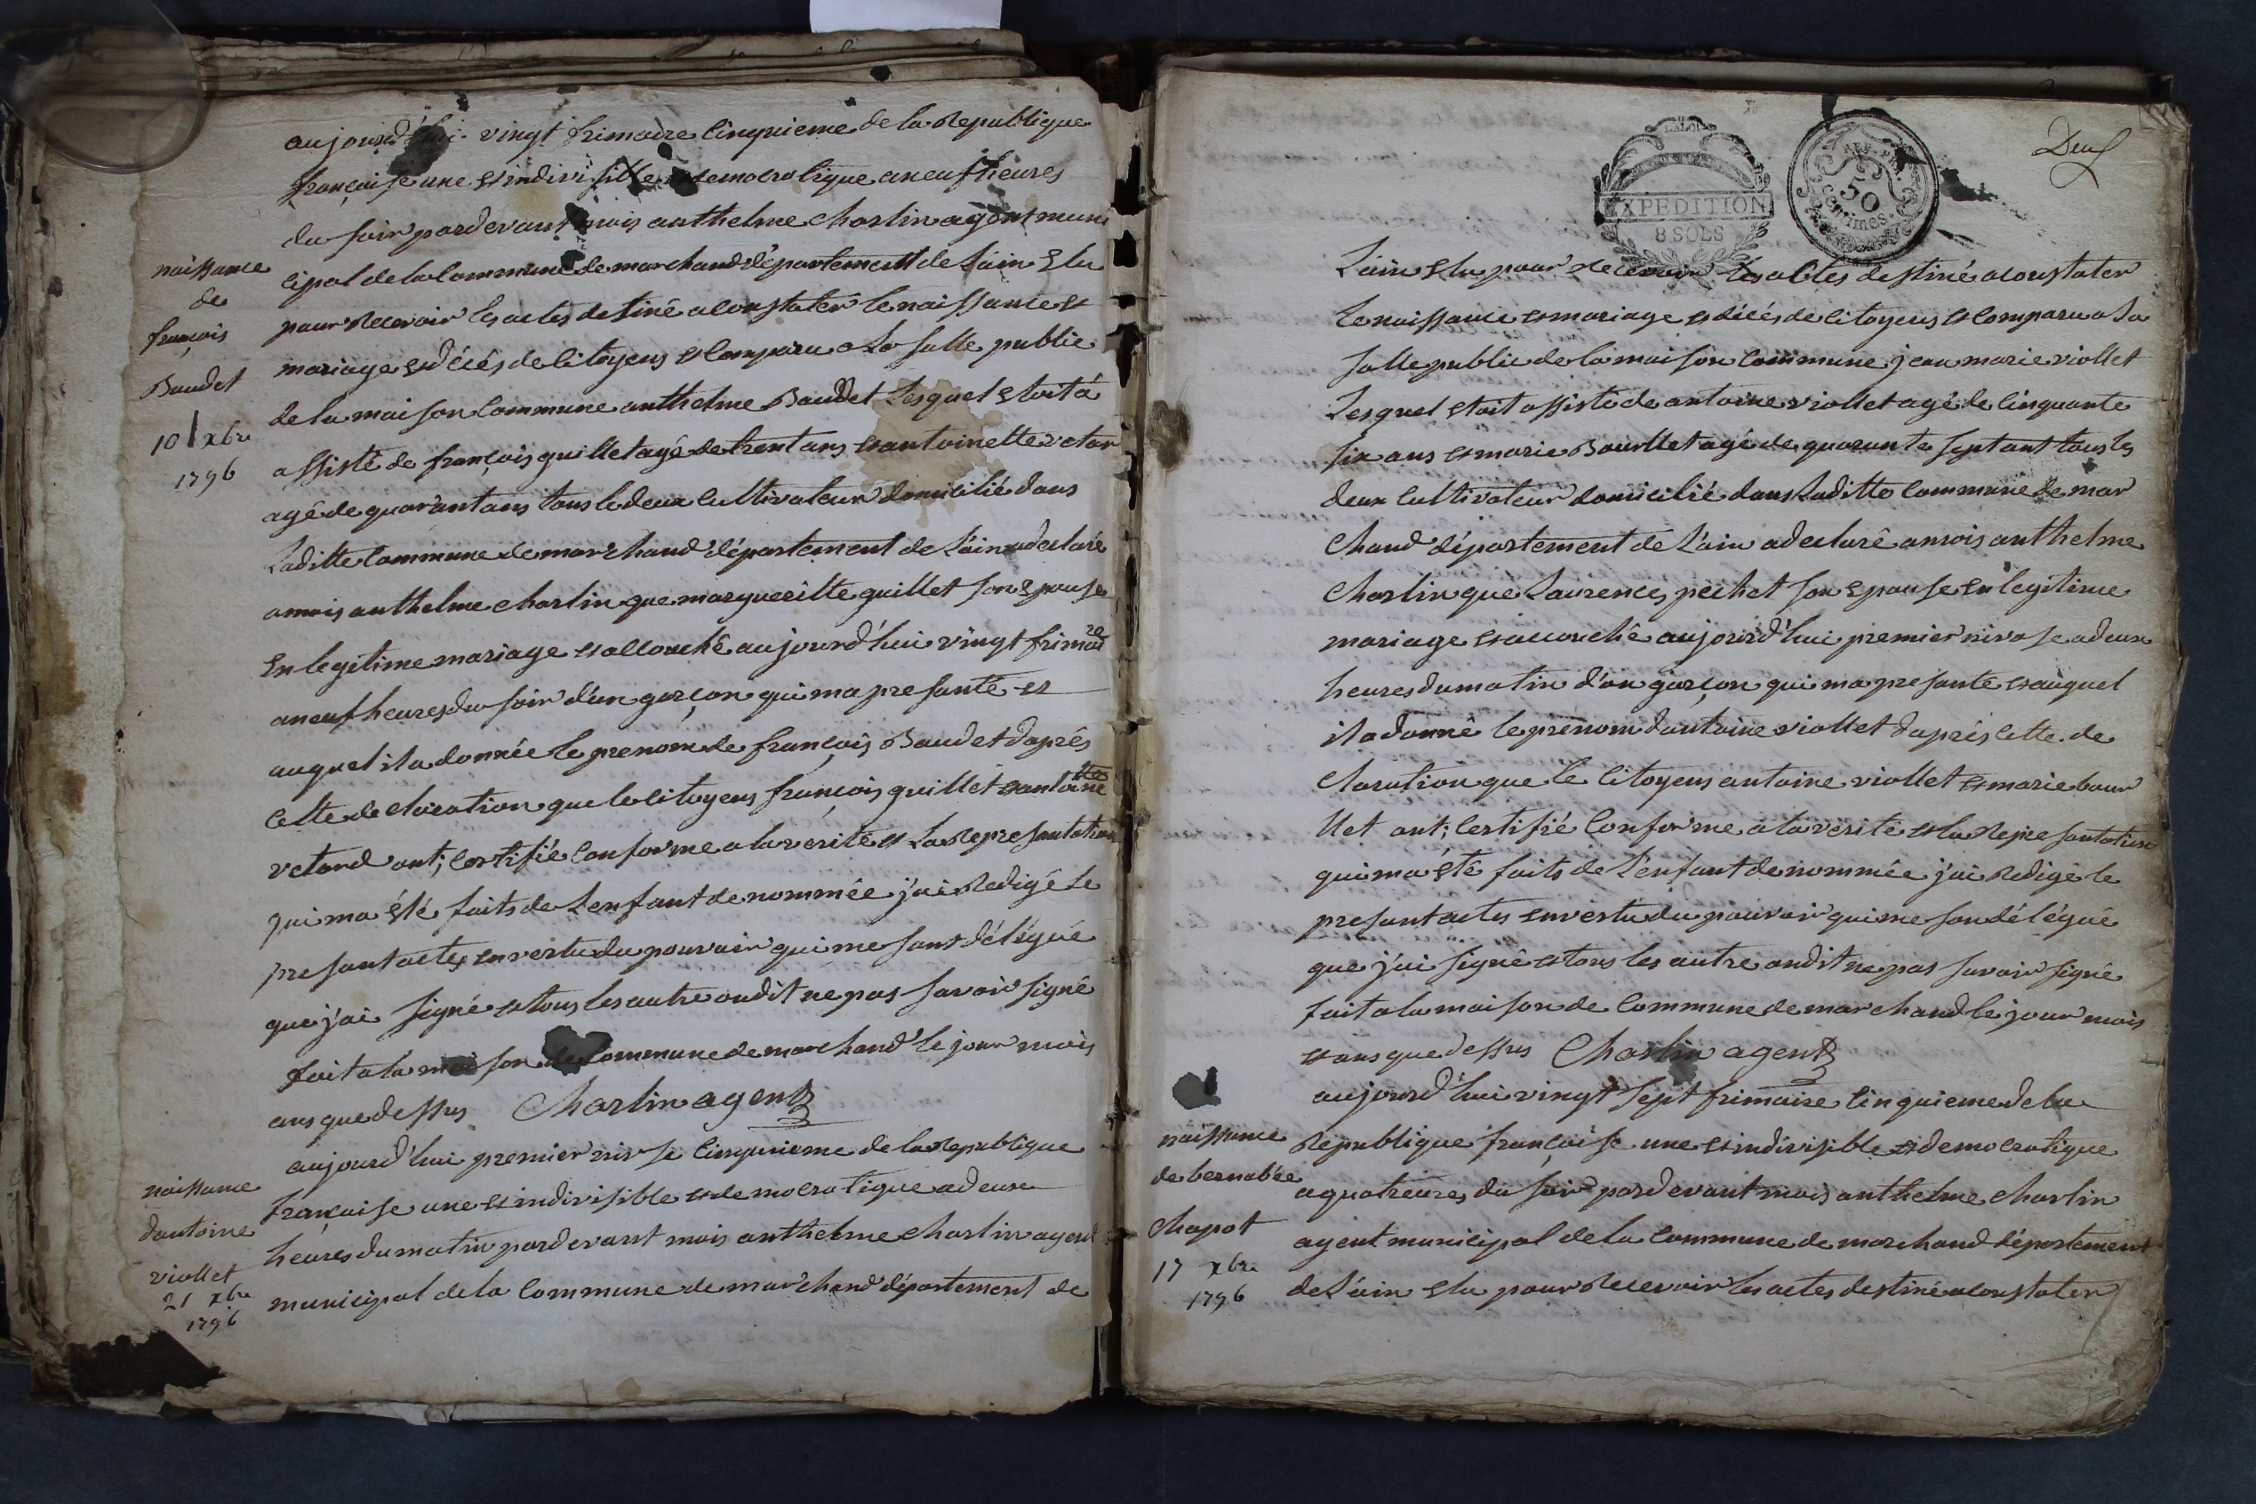 aujourd'hui vingt frimaire cinquieme de la Republique
françoise une et indivisible et democratique a neuf heures
du soir pardevant mois anthelme charlin agent muni
cipal de la commune de marchand département de L'ain Elu
pour Recevoir les actes destiné a constater le naissance et
mariage et décés de citoyens et comparu a La salle public
de la maison commune anthelme Baudet Lesquel Etoit á
assisté de françois guillet agé de trent ans et antoinette vetar
agé de quarant ans tous le deux cultivateur domicilié dans
Laditte Commune de marchand département de L'ain a declaré
a mois anthelme charlin que margueritte guillet son Epouse
En legitime mariage et accouché aujourd'hui vingt frimaire
a neuf heures du soir d'un garçon qui ma presanté et
auquel il a donnée le prenom de françois Baudet daprés
cette declaration que le citoyens françois guillet et antoinette
vetard ont; certifié conforme a la verité et La Represantation
qui ma été faits de L'enfant denommée j'ai Redigé Le
presant actes en vertu du pouvoir qui me sont délégué
que j'ai signé et tous les autre on dit ne pas savoir signé
fait a la maison de commune de marchand le jour mois
ans que dessus Charlin agent
naissance
de
françois
Baudet
10 xbre
1796
aujourd'hui premier nivose cinquieme de la Republique
françoise une et indivisible et democratique a deux
heures du matin pardevant mois anthelme charlin agent
municipal de la Commune de marchand département de
naissance
dantoine
viollet
21 xbre
1796
Deux
EXPEDITION
8 SOLS
50
centimes.
L'ain Elu pour Recevoir Les actes destiné a constater
Le naissance et mariage et décés de citoyens et comparu a La
salle public de la maison commune jean marie viollet
Lesquel Etoit assisté de antoine viollet agé de cinquante
six ans et marie Bourllet agé de quarante sept ant tous les
deux cultivateur domicilié dans Laditte commune de mar
chand département de L'ain a declaré a mois anthelme
Charlin que Laurences pechet son Epouse En legitime
mariage et accouché aujourd'hui premier nivose a deux
heures du matin d'un garçon qui ma presanté et auquel
il a donné le prenom dantoine viollet daprés cette de
claration que le citoyens antoine viollet et marie bour
llet ont; certifié conforme a la verité et la Represantation
qui ma été faits de L'enfant denommée j'ai Redigé le
presant actes en vertu du pouvoir qui me son délégué
que j'ai signé et tous les autre on dit ne pas savoir signé
fait a la maison de commune de marchand le jour mois
et ans que dessus Charlin agent
aujourd'hui vingt sept frimaire cinquieme de la
Republique françoise une et indivisible et democratique
a quatreures du soir pardevant mois anthelme charlin
agent municipal de la commune de marchand département
de L'ain Elu pour Recevoir les actes destiné a constater
naissance
de bernabée
Chapot
17 xbre
1796